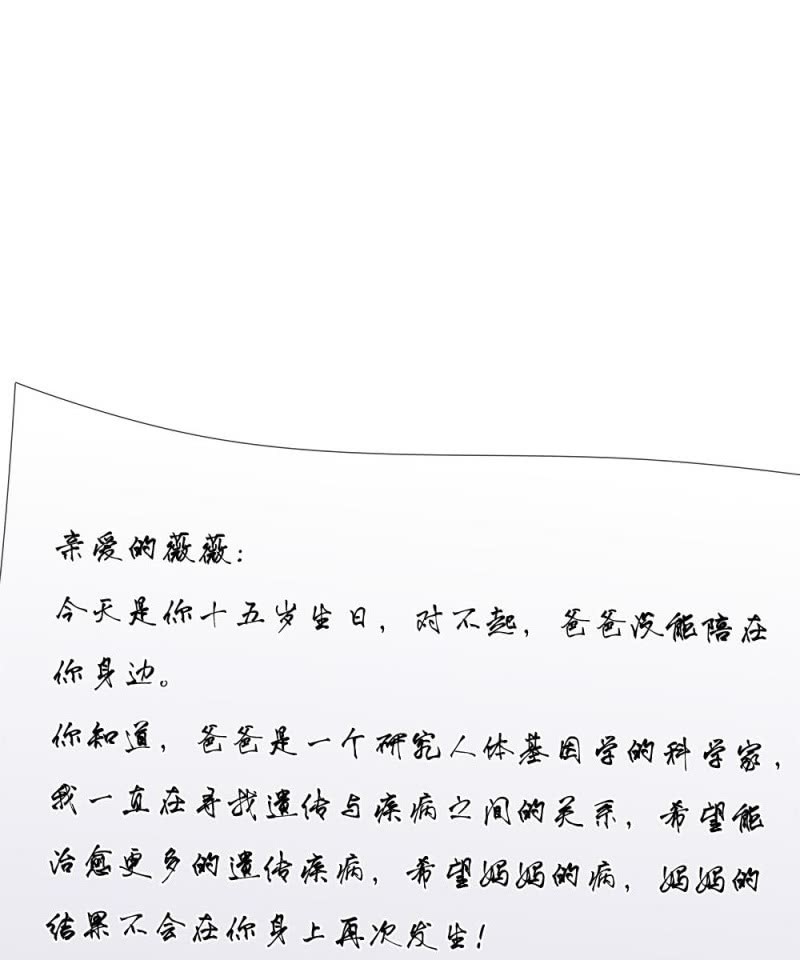 亲爱的薇薇：
今天是你十五岁生日，对不起，爸爸没能陪在
你身边。
你知道，爸爸是一个研究人体基因学的科学家，
我一直在寻找遗传与疾病之间的关系，希望能
治愈更多的遗传疾病，希望妈妈的病，妈妈的
结果不会在你身上再次发生！